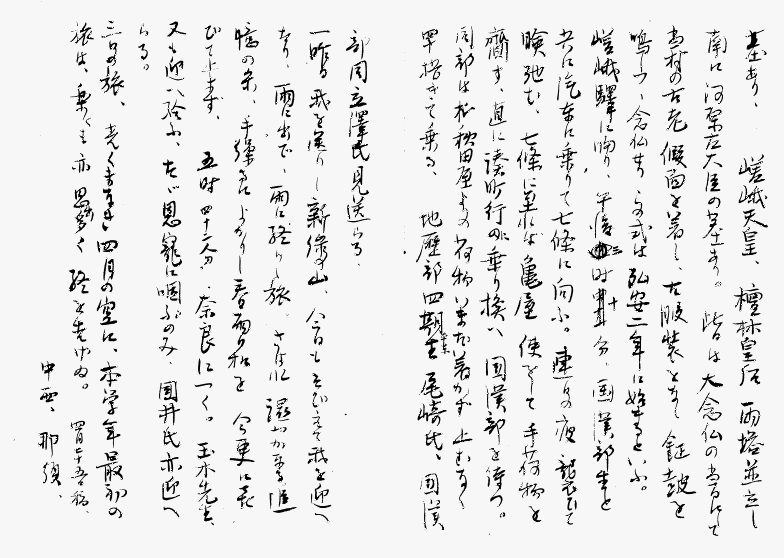 墓あり、 嵯峨天皇、檀林皇后両塔並立し
南に河原左大臣の墓あり。皆は大念仏の当日にて
当村の古老假面を着し、古服装をなし鉦鼓を
鳴らし、念仏せり、之式は弘安二年に始まるといふ。
嵯峨驛に向り、午後三時 十分、国漢部生と
共に汽車に乗りて七條に向ふ。連日の疲襲ひて
瞼弛む、七條に至れば亀屋使をして手荷物を
齎す、直に湊町行に乗り換へ国漢部を待つ。
国部は松秋田屋よりの荷物いまだ着かず止むなく
早搭きて乗る、 地歴部四期生尾崎氏、国漢
部国立澤氏見送らる、
一昨日我を送りし新緑の山、今日もそびえて我を迎へ
たり、雨に出で、雨に終りし旅、さるに温かか
幅の糸、手繰るによかりし春雨の私を今更に喜
びて止まず、 五時四十二分、奈良につく。玉木先生
又も迎へ給ふ、たゞ恩寵に咽ぶのみ、国井氏亦迎へ
らる。
三日の旅、 四月の空に、本学年最初の
旅は、 亦思多く終を告げぬ。 四月二十五日稿、
中西、那須、